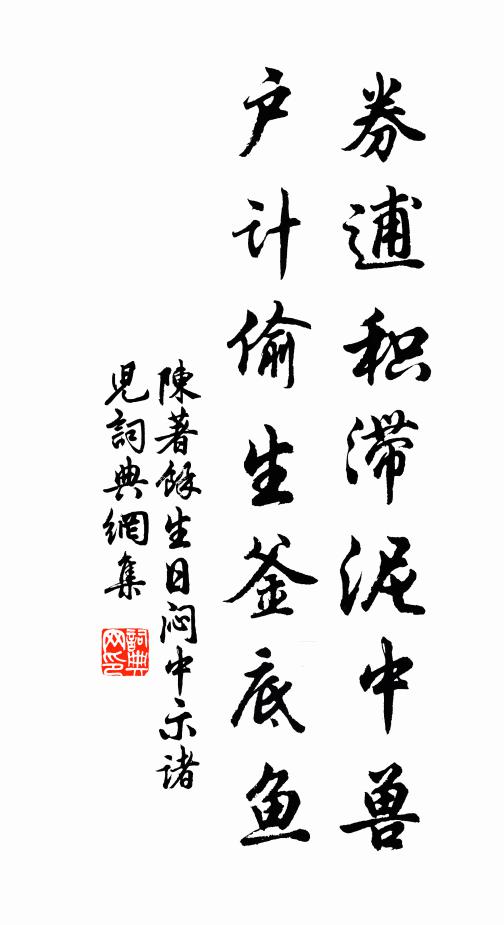 券逋积滞泥中兽
户计偷生釜底鱼
陳著餘生日闷中示諸
児詞典網集
詞典网印